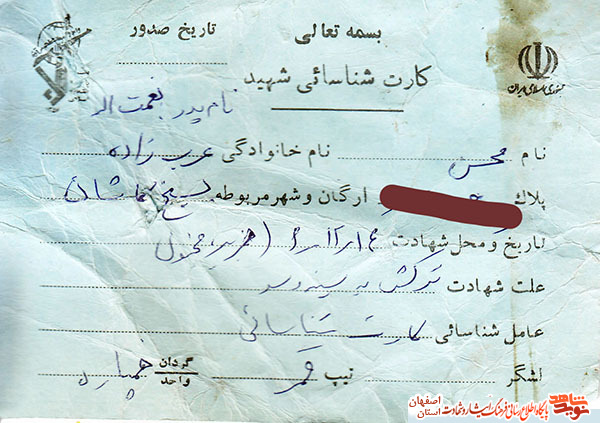 بسمه تعالی
تاریخ صدور
کارت شناسائی شهید
جمهوری اسلامی ایران
نام پدر نعمت اله
نام محسن نام خانوادگی عرب زاده
پلاک ارگان و شهر مربوطه بسیج
تاریخ و محل شهادت جزیره مجنون
علت شهادت ترکش به سینه و سر
عامل شناسائی کارت شناسائی
لشگر تیپ قمر گردان واحد
نوید شاهد
پایگاه اطلاع رسانی فرهنگ ایثار و شهادت
استان اصفهان